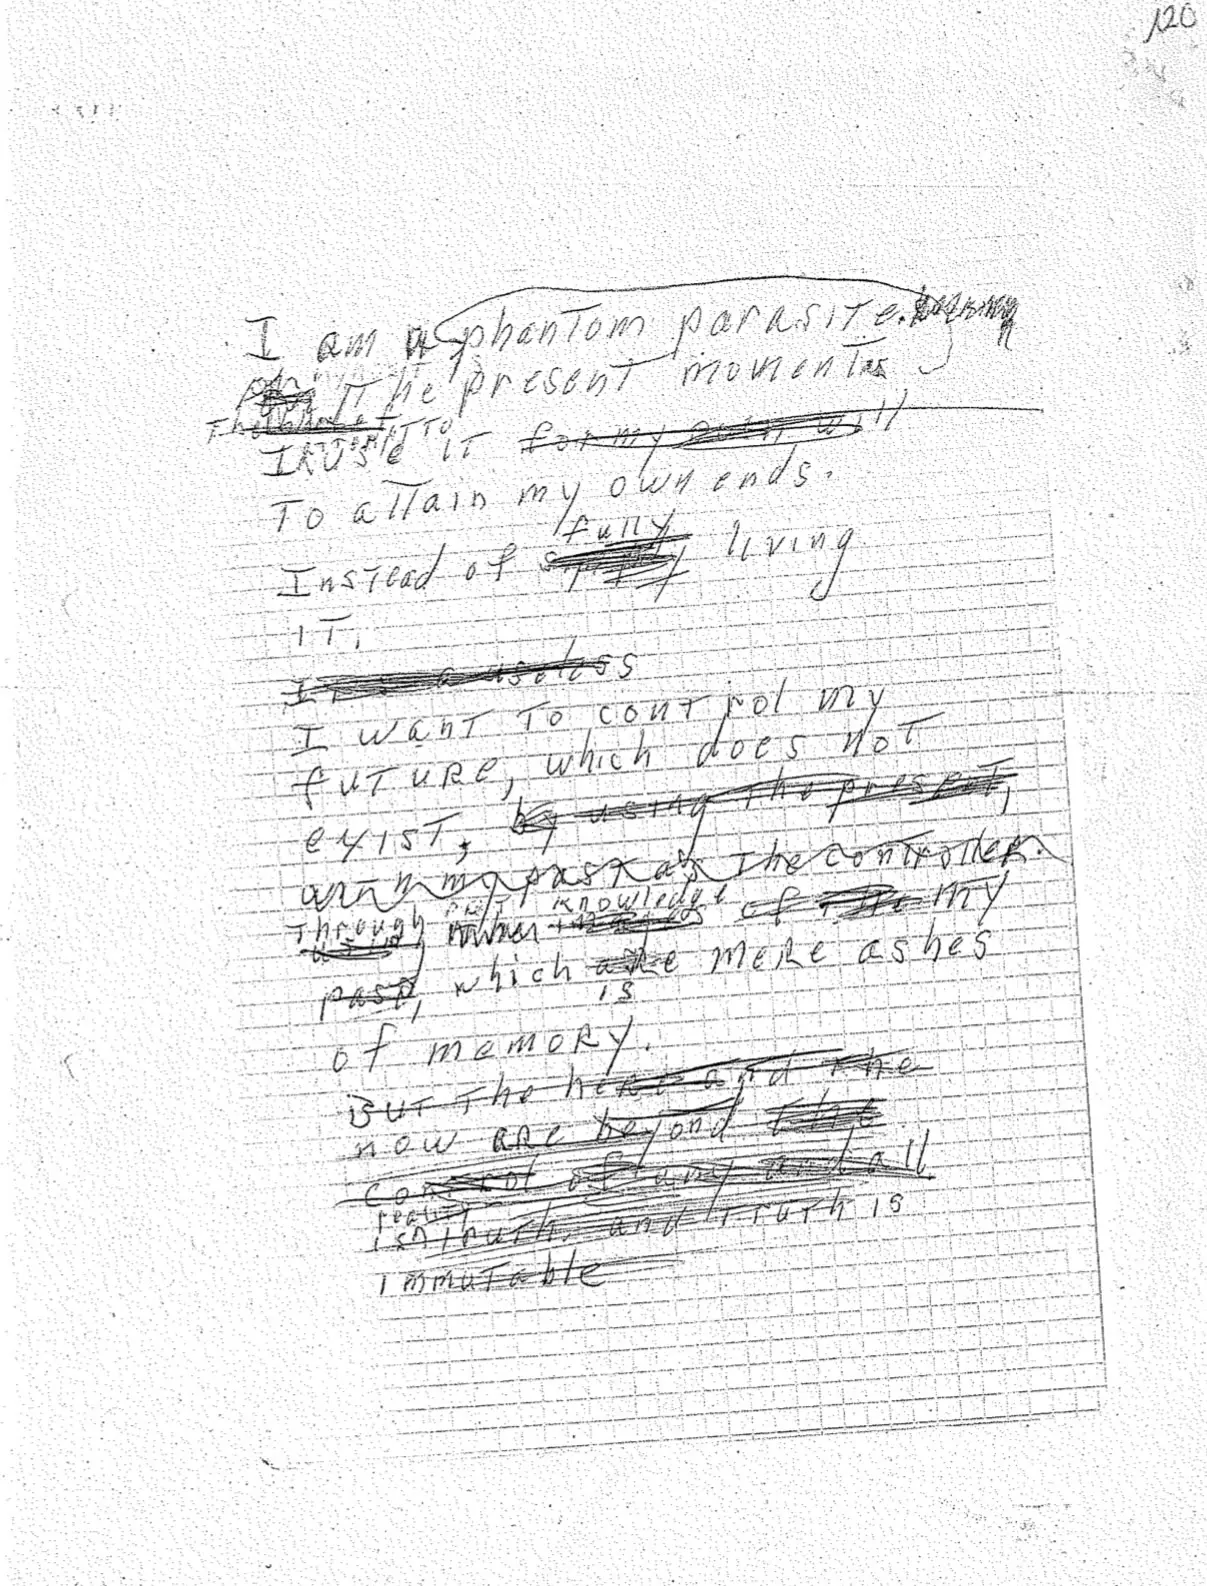 120
I am a phantom parasite.
The present moment
I use it for my will
ATTEMPT TO
To attain my own ends.
fully
Instead of living
IT.
I a useless
I want To control my
fuTuRe, which does not
exist, by using the present,
my past as The controller.
past knowledge
Through of my
past, which are mere ashes
is
of memory.
But The here and the
now are beyond the
control of any and all
reality
is truth, and truth is
immutable